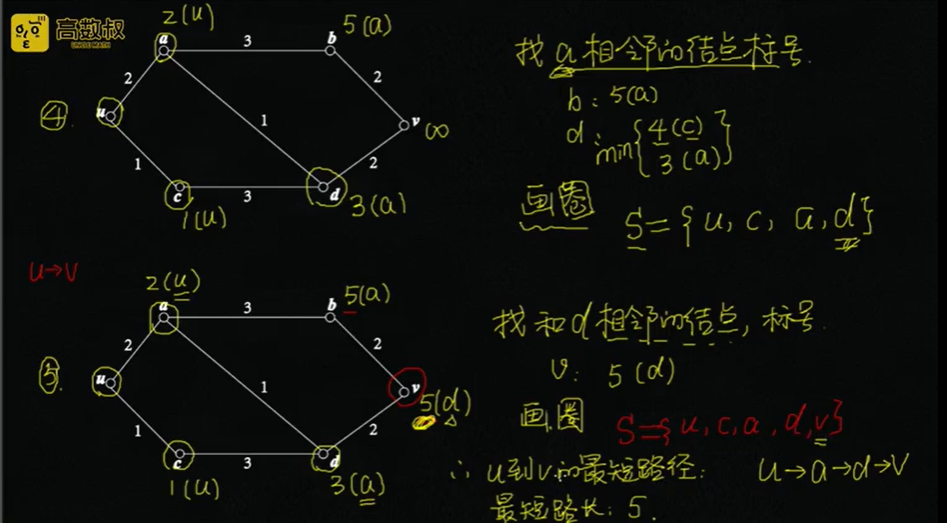 高数叔
UNCLE MATH
2(u)
5(a)
a 3 b
2 2
④ u 1 v ∞
1 2
c 3 d
1(u) 3(a)
找a相邻的结点标号.
b: 5(a)
d: min{4(c)
3(a)}
画圈
S={u, c, a, d}
u→v
2(u) 5(a)
a 3 b
2 2
⑤. u 1 v
5(d)
1 2
c 3 d
1(u) 3(a)
找和d相邻的结点,标号.
v: 5(d)
画圈
S={u,c,a,d,v}
∴ u到v的最短路径: u→a→d→v
最短路长: 5.